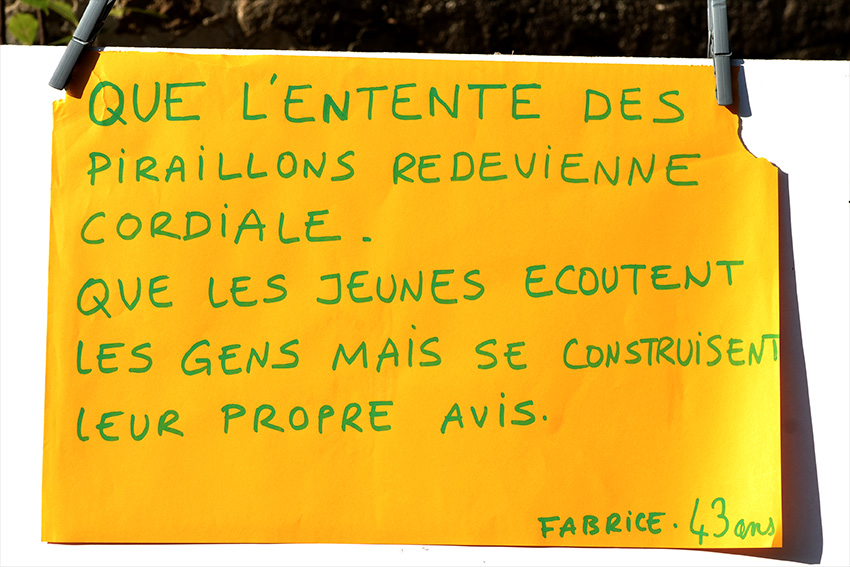 QUE L'ENTENTE DES
PIRAILLONS REDEVIENNE
CORDIALE.
QUE LES JEUNES ECOUTENT
LES GENS MAIS SE CONSTRUISENT
LEUR PROPRE AVIS.
FABRICE. 43 ans